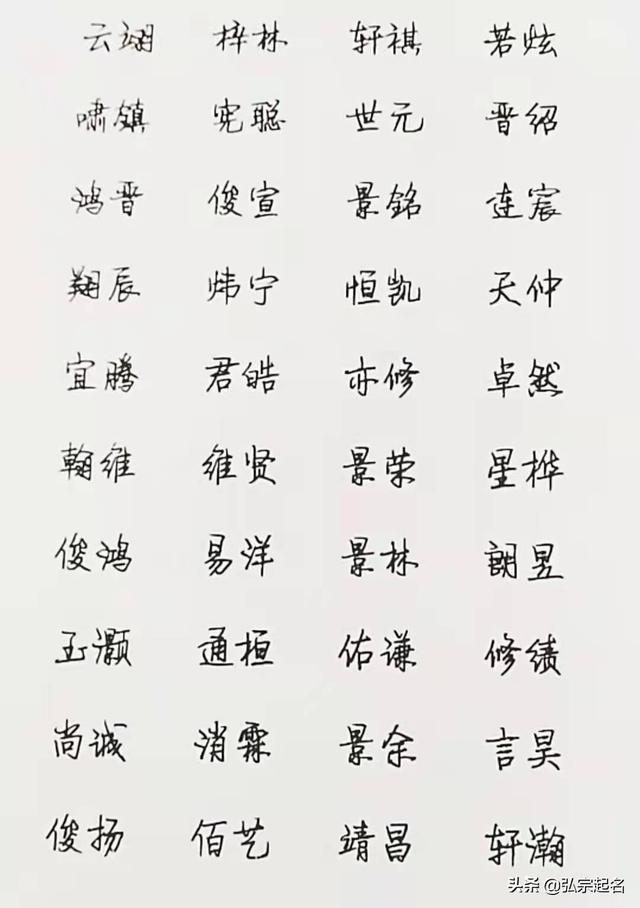 云翊 梓林 轩祺 若炫
啸镇 宪聪 世元 晋绍
鸿晋 俊宣 景铭 连宸
翔辰 炜宁 恒凯 天仲
宜腾 君皓 亦修 卓然
翰维 维贤 景荣 星桦
俊鸿 易洋 景林 朗昱
玉灏 通桓 佑谦 修绩
尚诚 消霖 景余 言昊
俊扬 佰艺 靖昌 轩瀚
头条 @弘宗起名